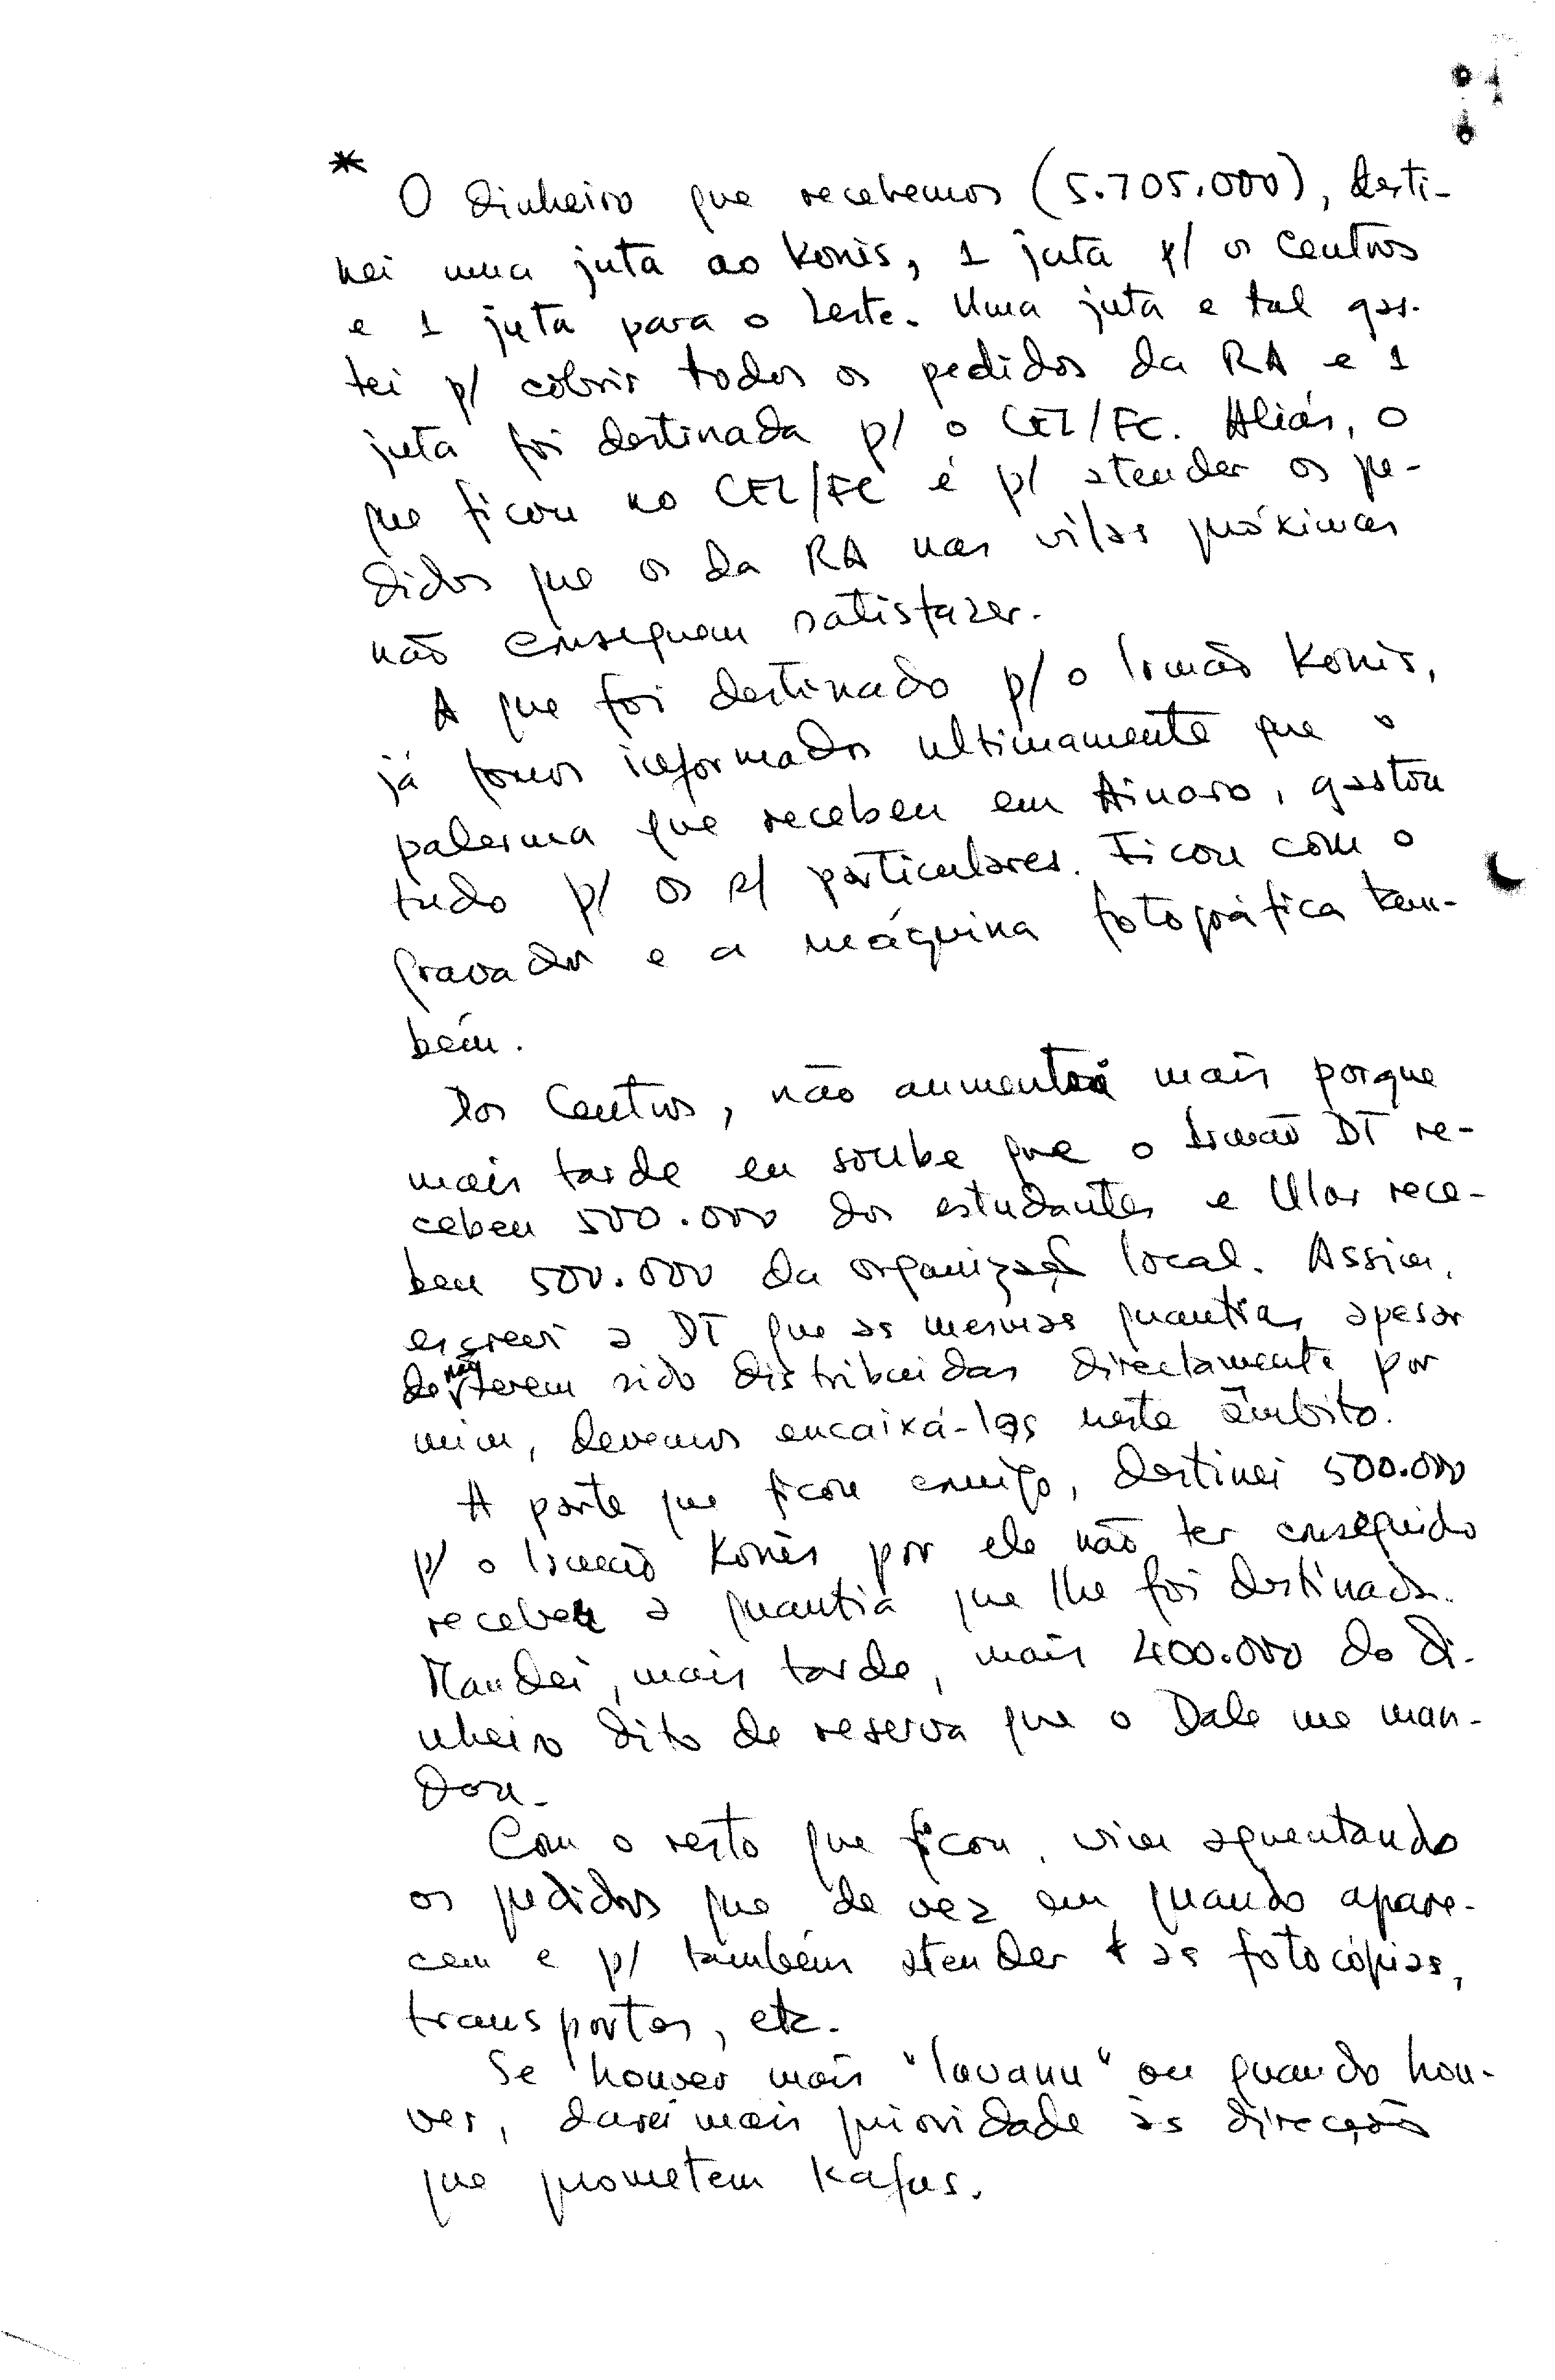 * O dinheiro que recebemos (5.705.000), desti-
nei uma juta ao Konis, 1 juta p/ os Centros
e 1 juta para o Leste. Uma juta e tal gas-
tei p/ cobrir todos os pedidos da RA e 1
juta foi destinada p/ o CEL/FC. Aliás, o
que ficou no CEL/FC é p/ atender os pe-
didos que os da RA nas vilas próximas
não conseguem satisfazer.
A que foi destinado p/ o Irmão Konis,
já fomos informados ultimamente que o
palerma que recebeu em Ainaro, gastou
tudo p/ os s/ particulares. Ficou com o
gravador e a máquina fotográfica tam-
bém.
Dos Centros, não aumentei mais porque
mais tarde eu soube que o Irmão DT re-
cebeu 500.000 dos estudantes e Ular rece-
beu 500.000 da organização local. Assim,
escrevi a DT que as mesmas quantias, apesar
de não terem sido distribuidas directamente por
mim, devemos encaixá-las neste âmbito.
A parte que ficou comigo, destinei 500.000
p/ o Irmão Konis por ele não ter conseguido
receber a quantia que lhe foi destinada.
Mandei, mais tarde, mais 400.000 do di-
nheiro dito de reserva que o Dale me man-
dou.
Com o resto que ficou, vim aguentando
os pedidos que de vez em quando apare-
cem e p/ também atender as fotocópias,
transportes, etc.
Se houver mais "lavanu" ou quando hou-
ver, darei mais prioridade às direcções
que prometem Kafus.